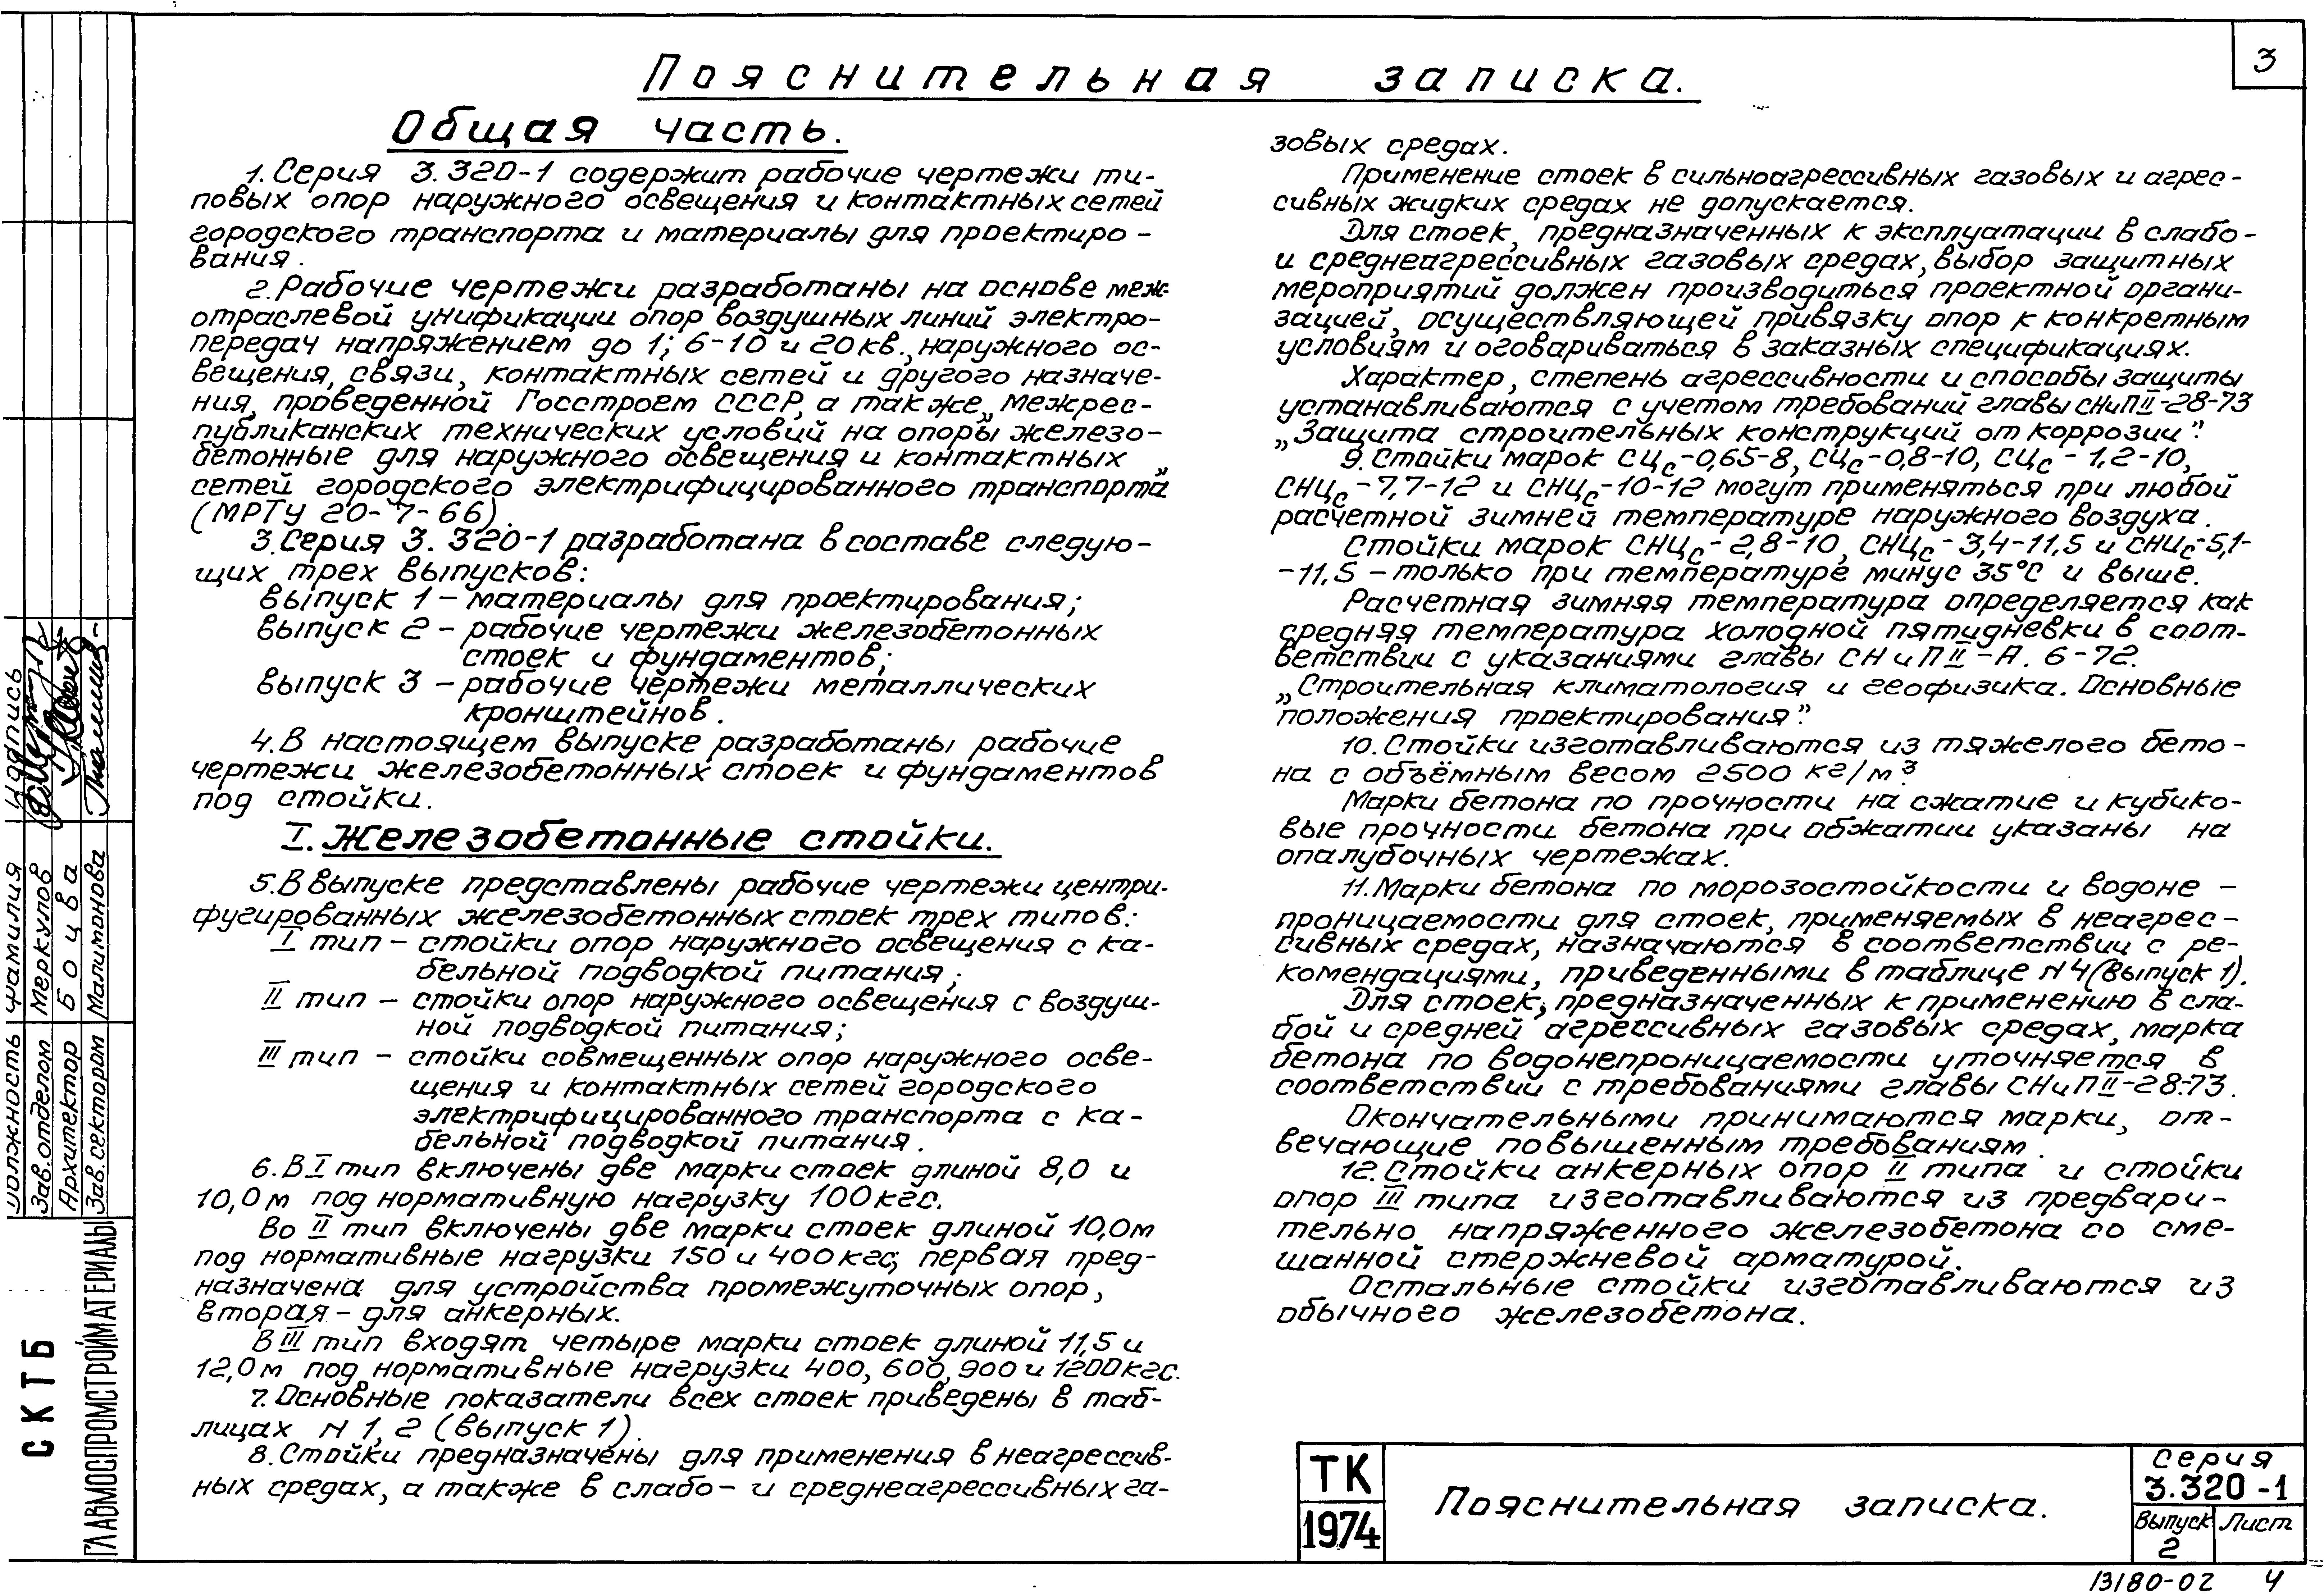 3
Пояснительная записка.
Общая часть.
1. Серия 3.320-1 содержит рабочие чертежи ти-
повых опор наружного освещения и контактных сетей
городского транспорта и материалы для проектиро-
вания.
2. Рабочие чертежи разработаны на основе меж-
отраслевой унификации опор воздушных линий электро-
передач напряжением до 1; 6-10 и 20 кв., наружного ос-
вещения, связи, контактных сетей и другого назначе-
ния, проведенной Госстроем СССР, а также „Межрес-
публиканских технических условий на опоры железо-
бетонные для наружного освещения и контактных
сетей городского электрифицированного транспорта"
(МРТУ 20-7-66).
3. Серия 3.320-1 разработана в составе следую-
щих трех выпусков:
выпуск 1 - материалы для проектирования;
выпуск 2 - рабочие чертежи железобетонных
стоек и фундаментов;
выпуск 3 - рабочие чертежи металлических
кронштейнов.
4. В настоящем выпуске разработаны рабочие
чертежи железобетонных стоек и фундаментов
под стойки.
I. Железобетонные стойки.
5. В выпуске представлены рабочие чертежи центри-
фугированных железобетонных стоек трех типов:
I тип - стойки опор наружного освещения с ка-
бельной подводкой питания;
II тип - стойки опор наружного освещения с воздуш-
ной подводкой питания;
III тип - стойки совмещенных опор наружного осве-
щения и контактных сетей городского
электрифицированного транспорта с ка-
бельной подводкой питания.
6. В I тип включены две марки стоек длиной 8,0 и
10,0 м под нормативную нагрузку 100 кгс.
Во II тип включены две марки стоек длиной 10,0 м
под нормативные нагрузки 150 и 400 кгс; первая пред-
назначена для устройства промежуточных опор,
вторая - для анкерных.
В III тип входят четыре марки стоек длиной 11,5 и
12,0 м под нормативные нагрузки 400, 600, 900 и 1200 кгс.
7. Основные показатели всех стоек приведены в таб-
лицах N 1, 2 (выпуск 1).
8. Стойки предназначены для применения в неагрессив-
ных средах, а также в слабо- и среднеагрессивных га-
зовых средах.
Применение стоек в сильноагрессивных газовых и агрес-
сивных жидких средах не допускается.
Для стоек, предназначенных к эксплуатации в слабо-
и среднеагрессивных газовых средах, выбор защитных
мероприятий должен производиться проектной органи-
зацией, осуществляющей привязку опор к конкретным
условиям и оговариваться в заказных спецификациях.
Характер, степень агрессивности и способы защиты
устанавливаются с учетом требований главы СНиП II-28-73
„Защита строительных конструкций от коррозии".
9. Стойки марок СЦс-0,65-8, СЦс-0,8-10, СЦс-1,2-10,
СНЦс-7,7-12 и СНЦс-10-12 могут применяться при любой
расчетной зимней температуре наружного воздуха.
Стойки марок СНЦс-2,8-10, СНЦс-3,4-11,5 и СНЦс-5,1-
-11,5 - только при температуре минус 35°С и выше.
Расчетная зимняя температура определяется как
средняя температура холодной пятидневки в соот-
ветствии с указаниями главы СНиП II-А.6-72.
„Строительная климатология и геофизика. Основные
положения проектирования".
10. Стойки изготавливаются из тяжелого бето-
на с объёмным весом 2500 кг/м³
Марки бетона по прочности на сжатие и кубико-
вые прочности бетона при обжатии указаны на
опалубочных чертежах.
11. Марки бетона по морозостойкости и водоне-
проницаемости для стоек, применяемых в неагрес-
сивных средах, назначаются в соответствии с ре-
комендациями, приведенными в таблице N 4 (выпуск 1).
Для стоек, предназначенных к применению в сла-
бой и средней агрессивных газовых средах, марка
бетона по водонепроницаемости уточняется в
соответствии с требованиями главы СНиП II-28-73.
Окончательными принимаются марки, от-
вечающие повышенным требованиям.
12. Стойки анкерных опор II типа и стойки
опор III типа изготавливаются из предвари-
тельно напряженного железобетона со сме-
шанной стержневой арматурой.
Остальные стойки изготавливаются из
обычного железобетона.
Должность Фамилия Подпись
Зав. отделом Меркулов
Архитектор Боцва
Зав. сектором Малимонова
СКТБ
ГЛАВМОСПРОМСТРОЙМАТЕРИАЛЫ
ТК
1974
Пояснительная записка.
Серия
3.320-1
Выпуск Лист
2
13180-02 4